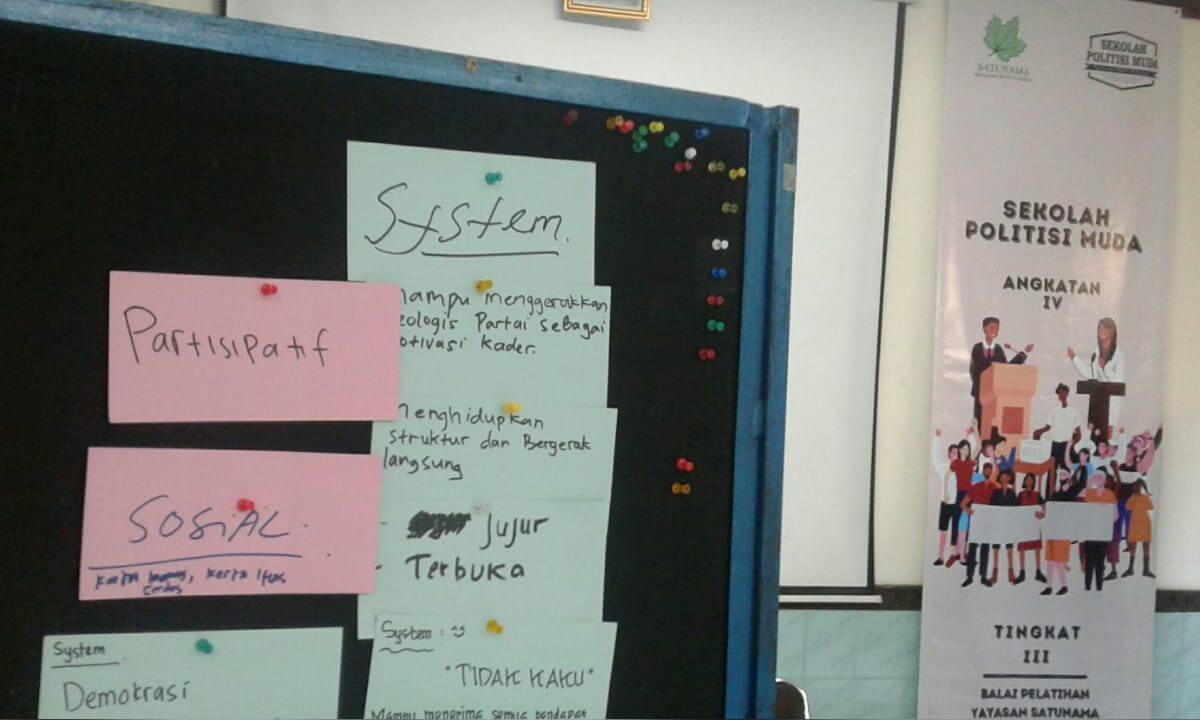 System.
mampu menggerakkan
eologis Partai sebagai
otivasi kader.
Partisipatif
Menghidupkan
struktur dan Bergerak
langsung
SOSIAL
kerja
cerdas
- Jujur
- Terbuka
System
Demokrasi
System : :)
"TIDAK KAKU"
Mampu menerima semua pendapat
SATUNAMA
SEKOLAH
POLITISI MUDA
SEKOLAH
POLITISI MUDA
ANGKATAN
IV
TINGKAT
III
BALAI PELATIHAN
YAYASAN SATUNAMA